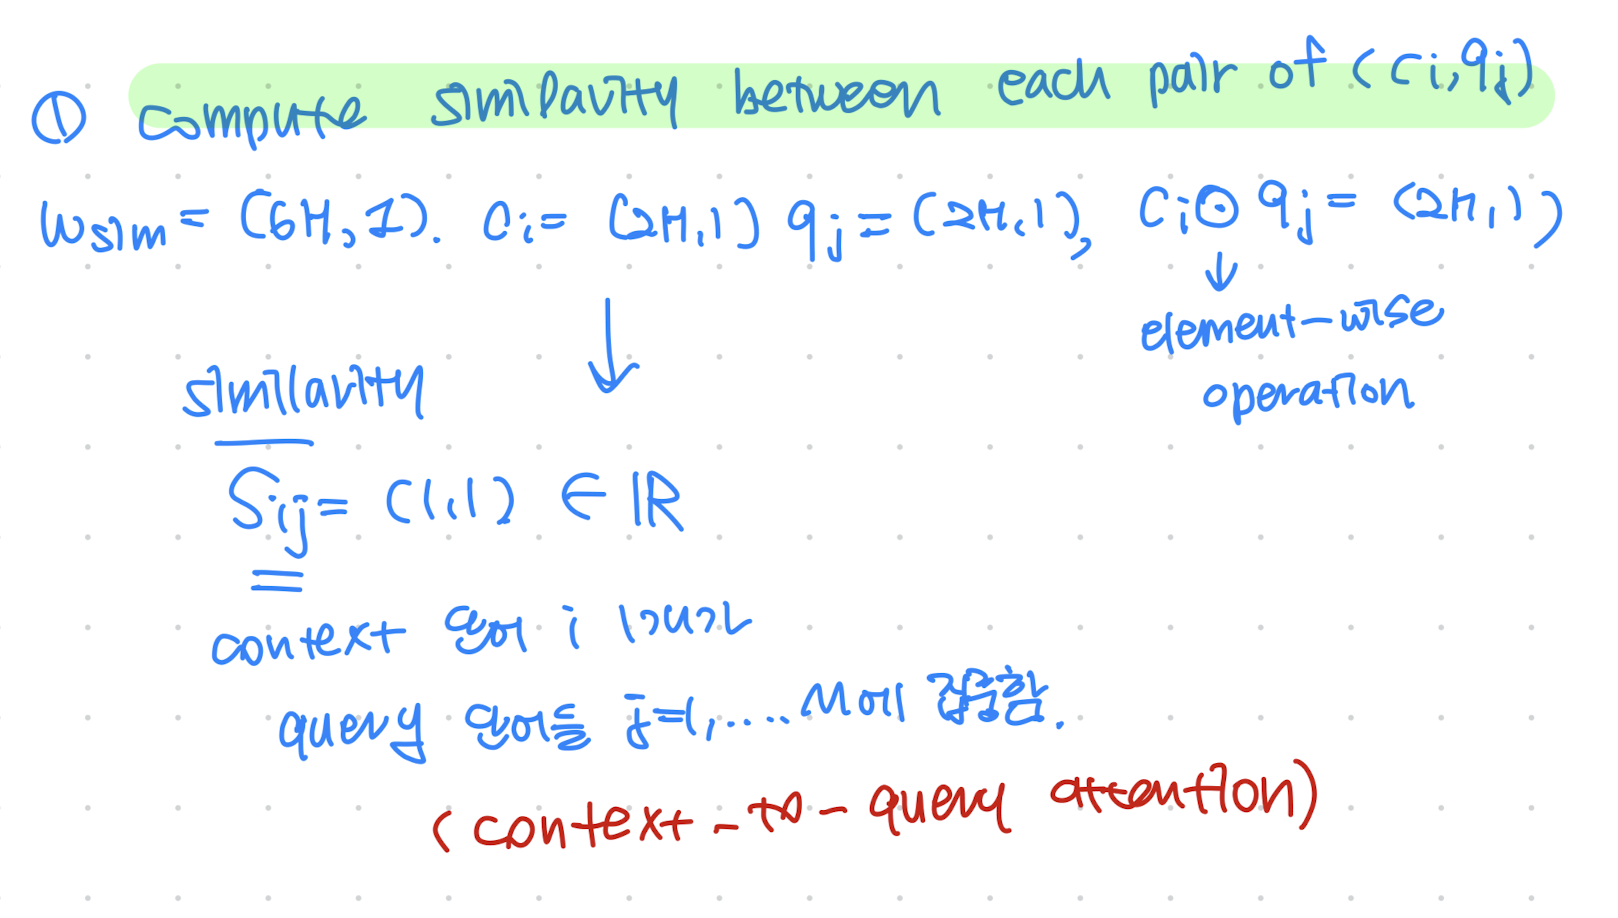 ① compute similarity between each pair of (ci, qj)
wsim = (6H, 1). ci = (2H, 1) qj = (2H, 1), ci ⊙ qj = (2H, 1)
↓
element-wise
operation
↓
similarity
Sij = (1, 1) ∈ ℝ
context 단어 i 1개가
query 단어들 j=1, .... M에 집중함.
(context - to - query attention)